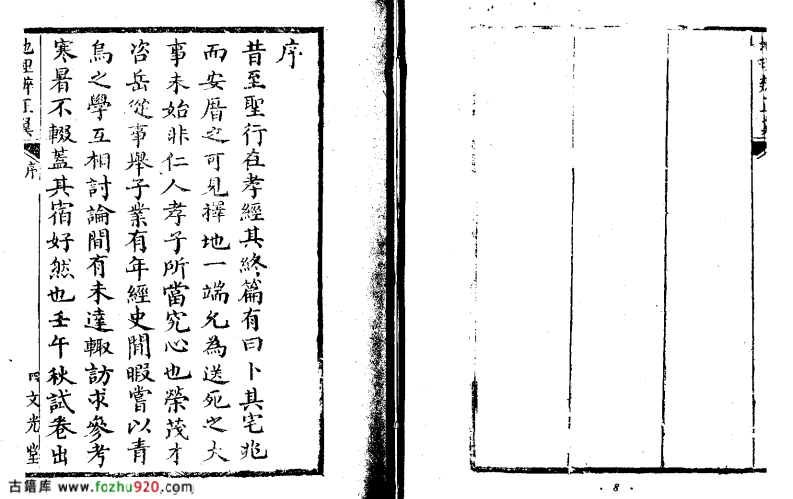 序
昔至聖行在孝經其終篇有曰卜其宅兆
而安厝之可見擇地一端允為送死之大
事未始非仁人孝子所當究心也榮茂才
咨岳從事舉子業有年經史閒暇嘗以青
烏之學互相討論間有未達輙訪求參考
寒暑不輟蓋其宿好然也壬午秋試卷出
地理辨正翼
序
四文光堂
· 8 ·
古籍库 www.fozhu920.com